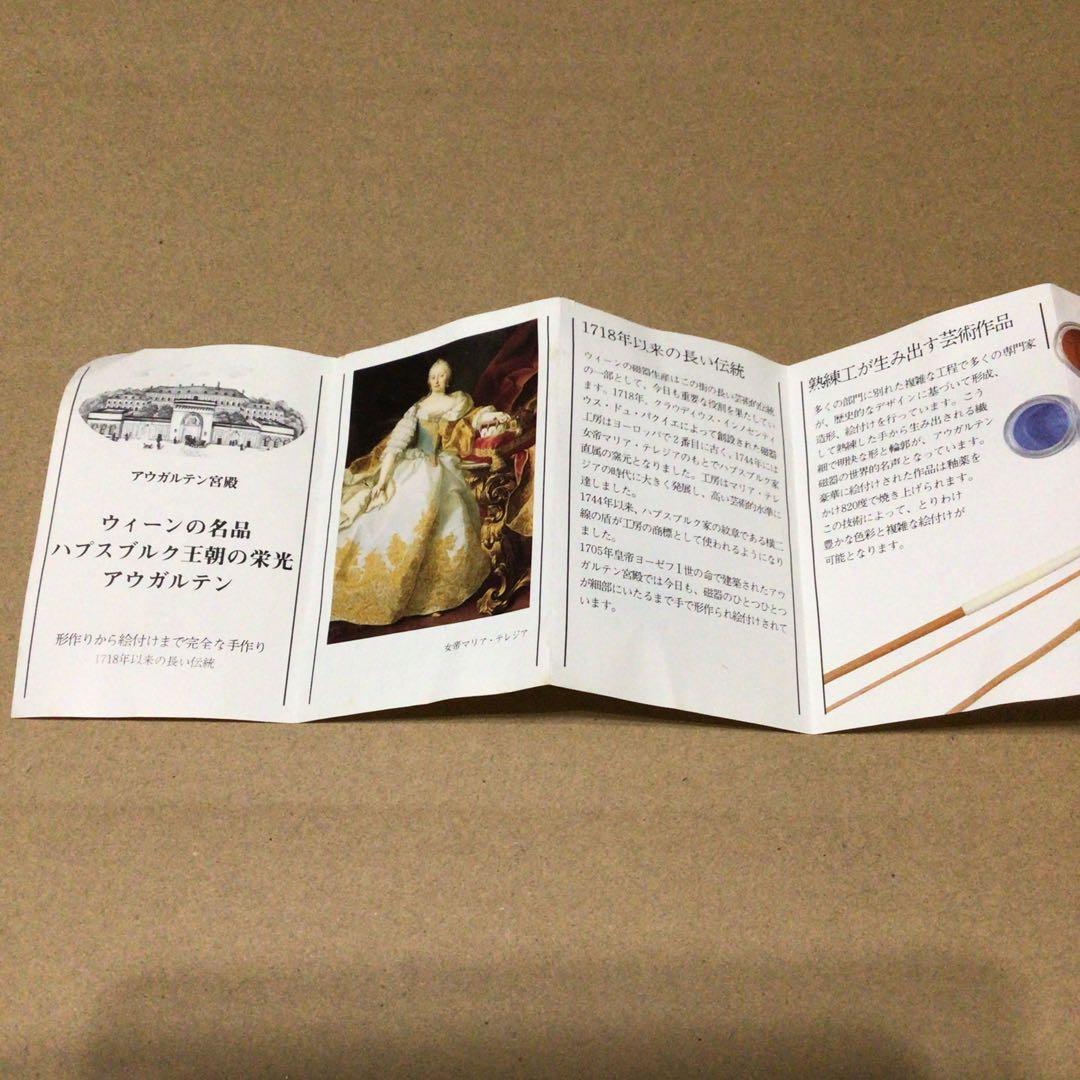 アウガルテン宮殿
ウィーンの名品
ハプスブルク王朝の栄光
アウガルテン
形作りから絵付けまで完全な手作り
1718年以来の長い伝統
女帝マリア・テレジア
1718年以来の長い伝統
ウィーンの磁器生産はこの街の長い芸術的伝統
の一部として、今日も重要な役割を果たしてい
ます。1718年、クラウディウス・インノセンティ
ウス・ドュ・パクイエによって創設された磁器
工房はヨーロッパで2番目に古く。1744年には
女帝マリア・テレジアのもとでハプスブルク家
直属の窯元となりました。工房はマリア・テレ
ジアの時代に大きく発展し、高い芸術的水準に
達しました。
1744年以来、ハプスブルク家の紋章である横二
線の盾が工房の商標として使われるようになり
ました。
1705年皇帝ヨーゼフ1世の命で建築されたアウ
ガルテン宮殿では今日も、磁器のひとつひとつ
が細部にいたるまで手で形作られ絵付けされて
います。
熟練工が生み出す芸術作品
多くの部門に別れた複雑な工程で多くの専門家
が、歴史的なデザインに基づいて形成、
造形、絵付けを行っています。こう
して熟練した手から生み出される繊
細で明快な形と輪郭が、アウガルテン
磁器の世界的名声となっています。
豪華に絵付けされた作品は釉薬を
かけ820度で焼き上げられます。
この技術によって、とりわけ
豊かな色彩と複雑な絵付けが
可能となります。